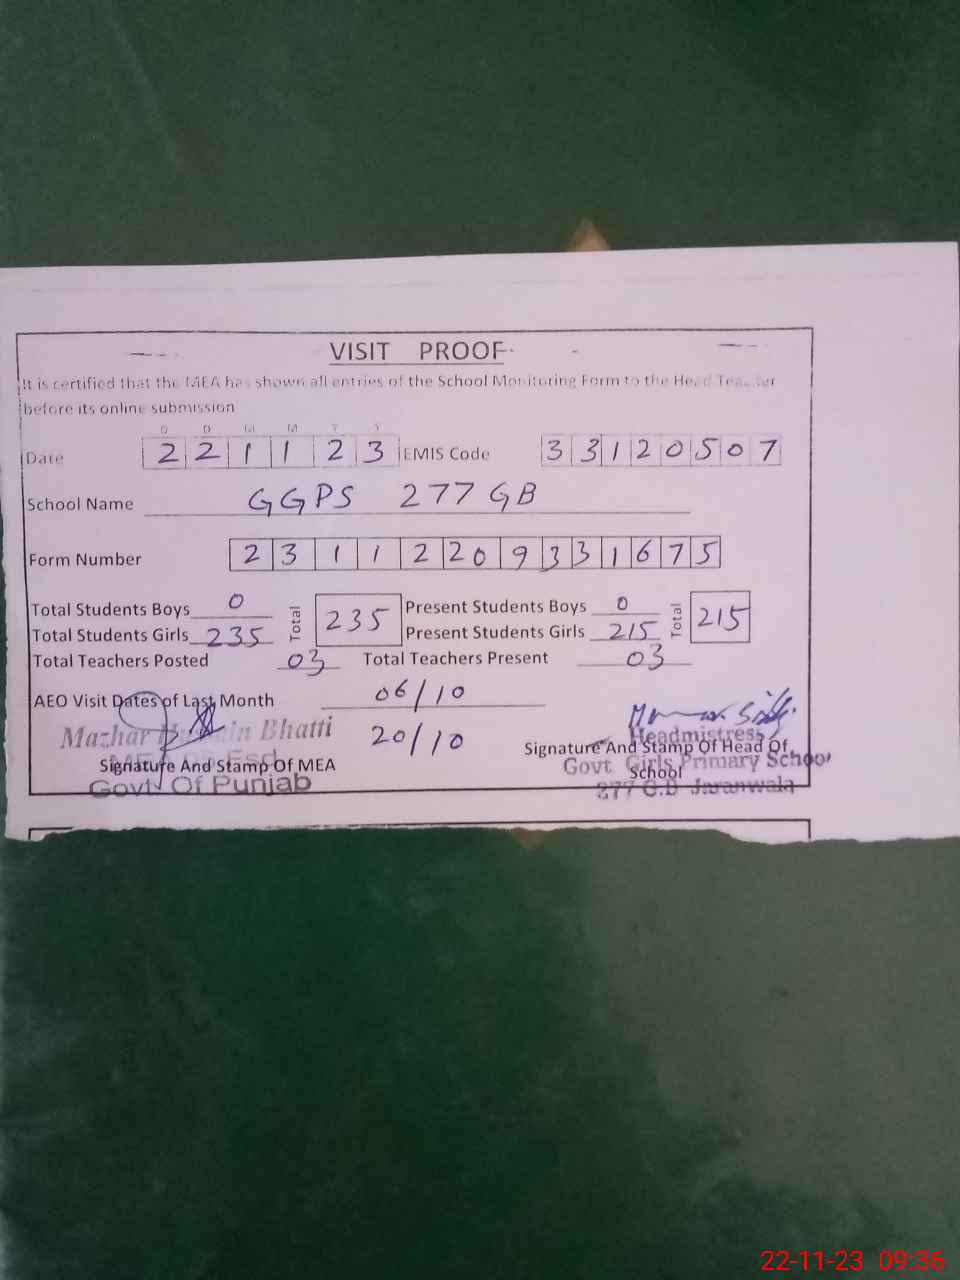 VISIT PROOF
It is certified that the MEA has shown all entries of the School Monitoring Form to the Head Teacher
before its online submission
D D M M Y Y
Date 2 2 1 1 2 3 EMIS Code 3 3 1 2 0 5 0 7
School Name GGPS 277 GB
Form Number 2 3 1 1 2 2 0 9 3 3 1 6 7 5
Total Students Boys 0 Total 235 Present Students Boys 0 Total 215
Total Students Girls 235 Present Students Girls 215
Total Teachers Posted 03 Total Teachers Present 03
AEO Visit Dates of Last Month 06/10
20/10
Mazhar Bhatti
Signature And Stamp Of MEA
Govt Of Punjab
Headmistress
Signature And Stamp Of Head Of
School
Govt Girls Primary School
277 G.B Jaranwala
22-11-23 09:36